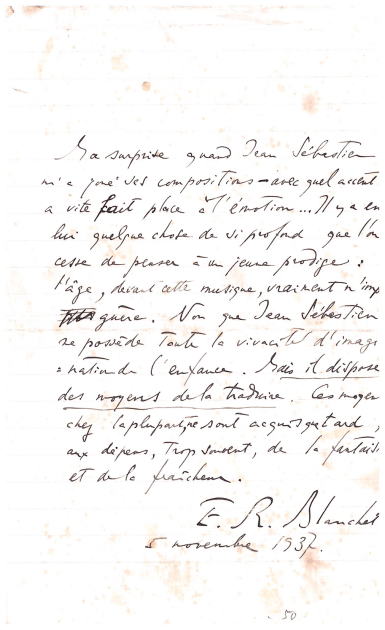 Ma surprise quand Jean Sébastien
m'a joué ses compositions - avec quel accent
a vite fait place à l'émotion... Il y a en
lui quelque chose de si profond que l'on
cesse de penser à un jeune prodige :
l'âge, devant cette musique, vraiment n'imp
guère. Non que Jean Sébastien
ne possède toute la vivacité d'imagi
=nation de l'enfance. Mais il dispose
des moyens de la traduire. Ces moyen
chez la plupart, ne sont acquis que tard,
aux dépens, trop souvent, de la fantaisi
et de la fraîcheur.
E. R. Blanchet
5 novembre 1937.
50